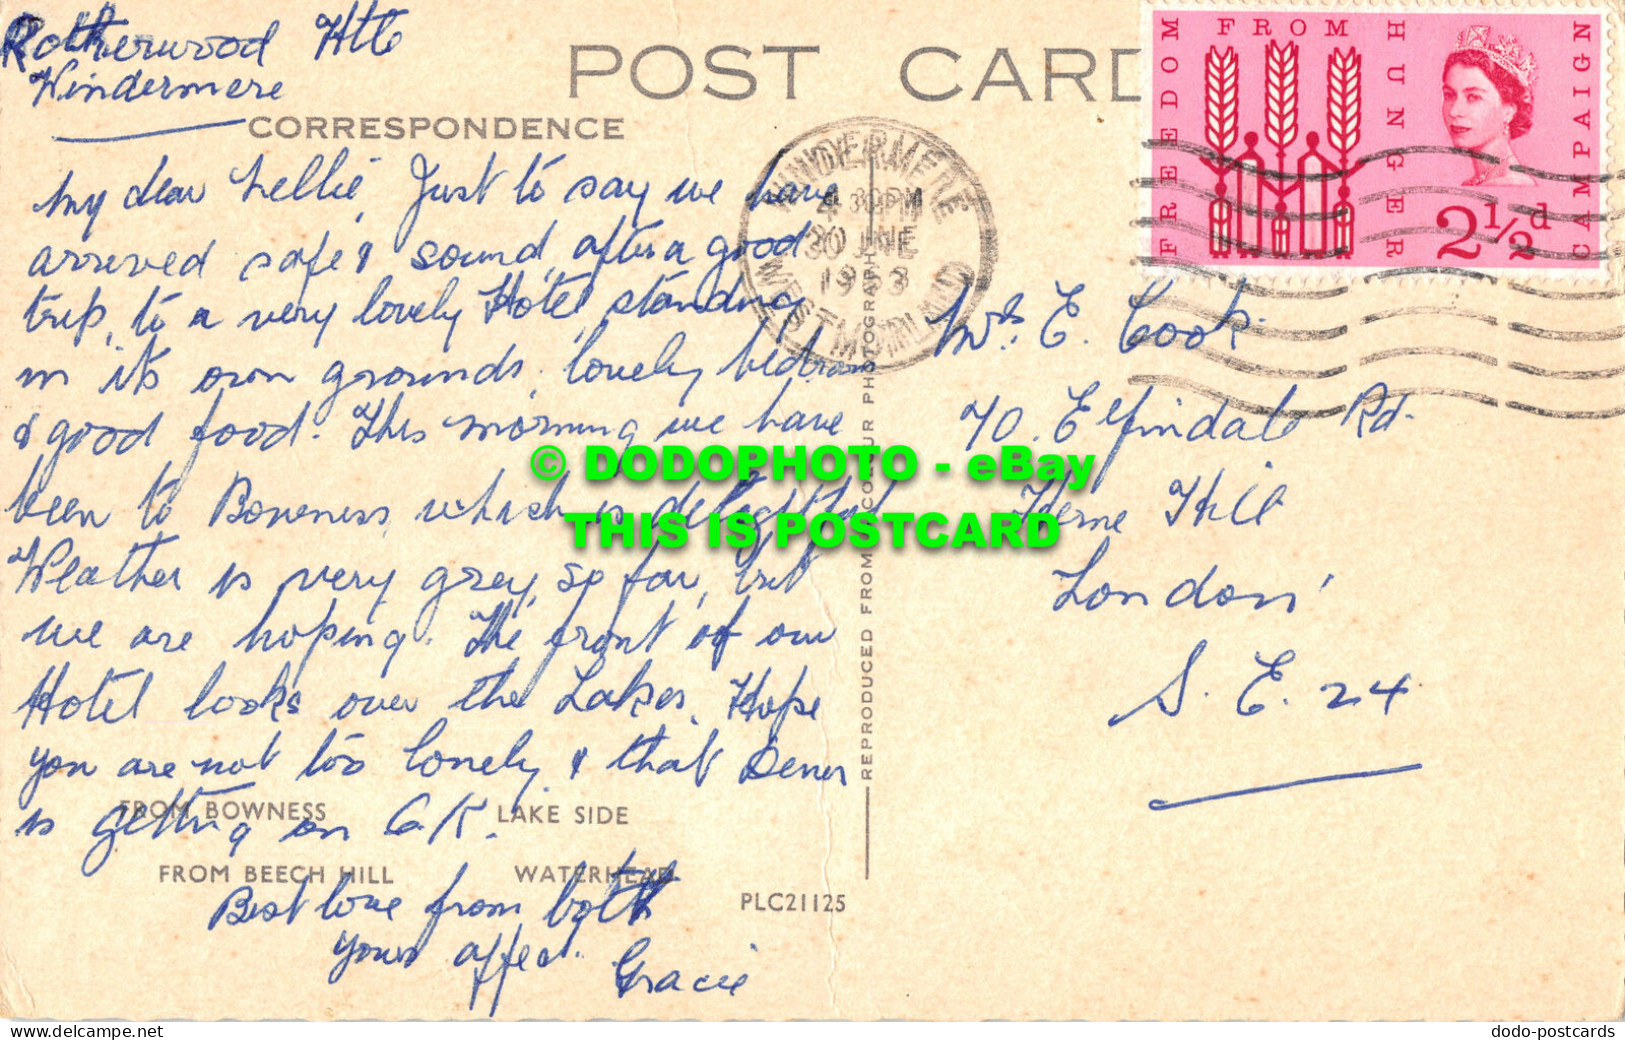 Rotherwood Htl
Windermere
POST CARD
CORRESPONDENCE
My dear Nellie, Just to say we have
arrived safe & sound, after a good
trip, to a very lovely Hotel, standing
in its own grounds, lovely bedroom
& good food. This morning we have
been to Bowness, which is delightful
Weather is very grey, so far, but
we are hoping. The front of our
Hotel looks over the Lakes. Hope
you are not too lonely, & that
is getting on O.K.
Best love from both
Yours affect.
Gracie
FROM BOWNESS LAKE SIDE
FROM BEECH HILL WATERHEAD
PLC21125
REPRODUCED FROM COLOUR PHOTOGRAPH
WINDERMERE
4.30PM
30 JNE
1963
WESTMORLAND
FREEDOM FROM HUNGER CAMPAIGN
2½d
Mrs. E. Cook
70. Elfindale Rd.
Herne Hill
London
S.E. 24
© DODOPHOTO - eBay
THIS IS POSTCARD
delcampe.net
dodo-postcards